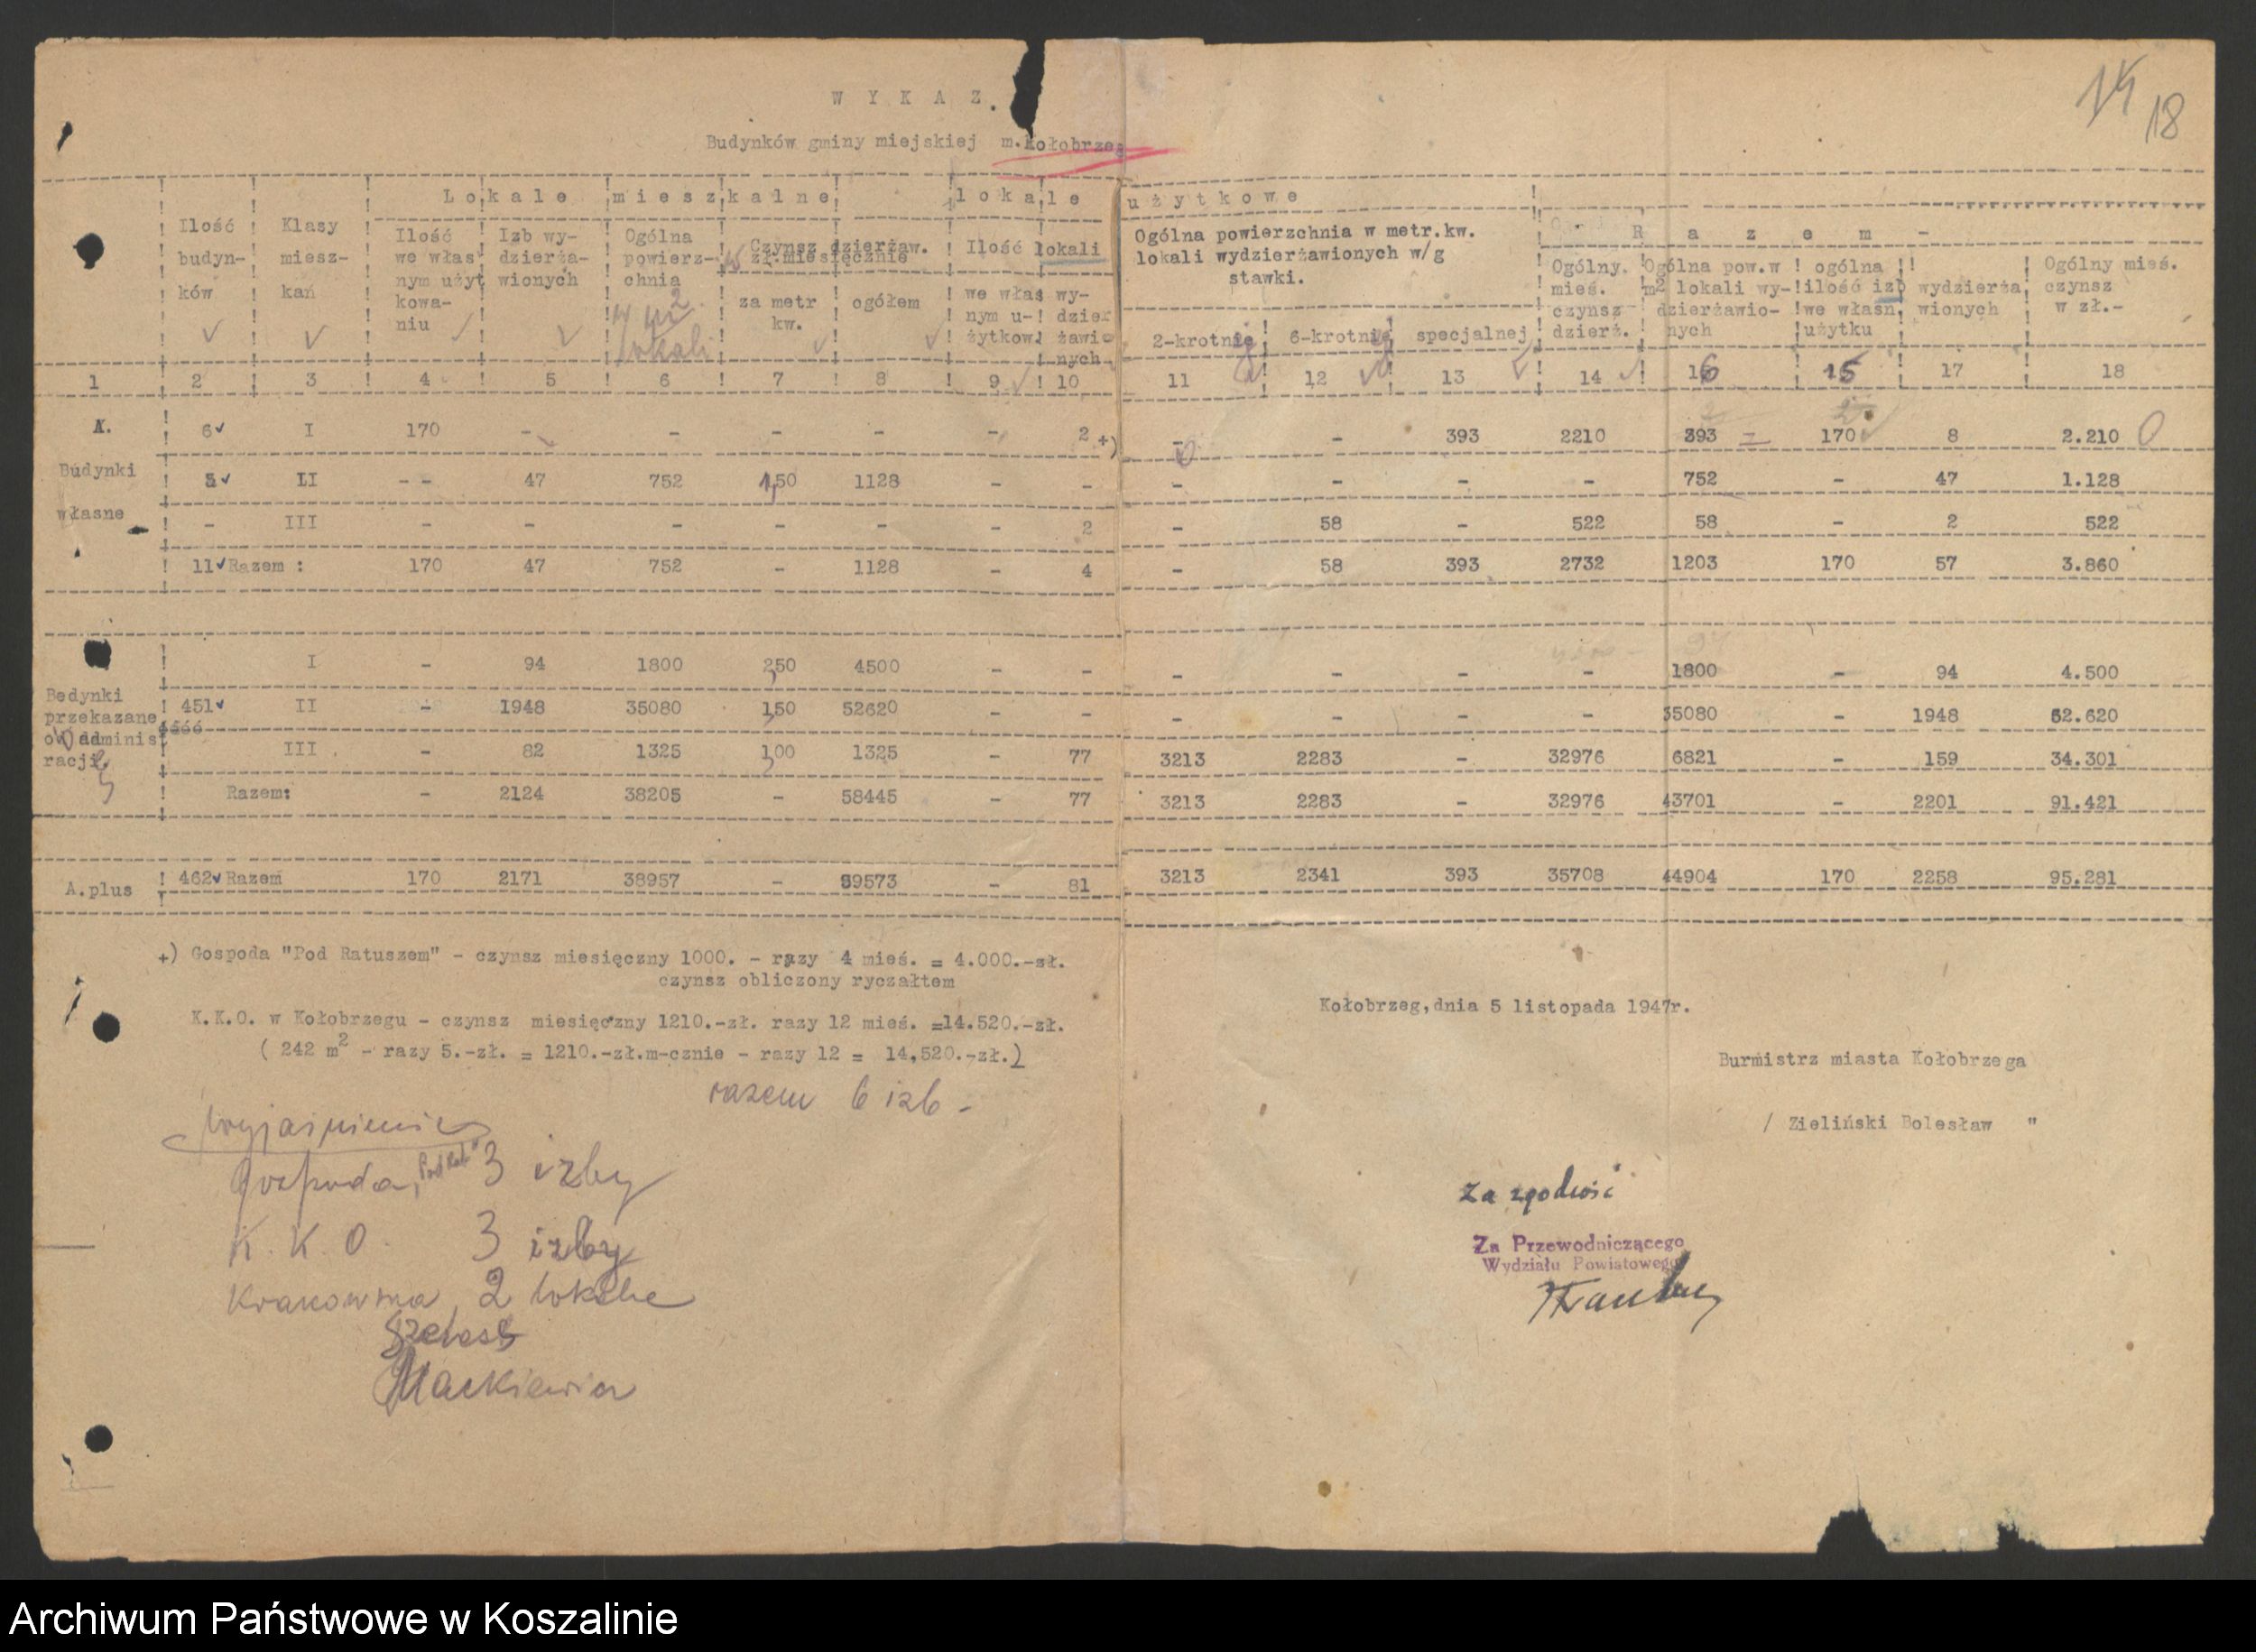 14
18
W Y K A Z.
Budynków gminy miejskiej m.Kołobrzeg
Lokale mieszkalne lokale użytkowe
R a z e m -
Ilość budyn- ków
Klasy miesz- kań
Ilość we włas nym użyt kowa- niu
Izb wy- dzierża- wionych
Ogólna powierz- chnia
w m2. lokali
Czynsz dzierżaw. zł.miesięcznie
za metr kw.
ogółem
Ilość lokali
we włas nym u- żytkow.
wy- dzier żawio nych
Ogólna powierzchnia w metr.kw. lokali wydzierżawionych w/g stawki.
2-krotnie
6-krotnie
specjalnej
Ogólny. mieś. czynsz dzierż.
Ogólna pow.w m2 lokali wy- dzierżawio- nych
ogólna ilość izb we własn. użytku
wydzierża wionych
Ogólny mieś. czynsz w zł.-
1 2 3 4 5 6 7 8 9 10 11 12 13 14 16 15 17 18
A. 6 I 170 - - - - - 2 +) - - 393 2210 393 170 8 2.210
Budynki 5 II - - 47 752 1,50 1128 - - - - - - 752 - 47 1.128
własne - III - - - - - - 2 - 58 - 522 58 - 2 522
11 Razem : 170 47 752 - 1128 - 4 - 58 393 2732 1203 170 57 3.860
I - 94 1800 2,50 4500 - - - - - - 1800 - 94 4.500
Bedynki
przekazane 451 II - 1948 35080 1,50 52620 - - - - - - 35080 - 1948 52.620
administ
racji. III - 82 1325 1,00 1325 - 77 3213 2283 - 32976 6821 - 159 34.301
Razem: - 2124 38205 - 58445 - 77 3213 2283 - 32976 43701 - 2201 91.421
A.plus 462 Razem 170 2171 38957 - 59573 - 81 3213 2341 393 35708 44904 170 2258 95.281
+) Gospoda "Pod Ratuszem" - czynsz miesięczny 1000. - razy 4 mieś. = 4.000.-zł.
czynsz obliczony ryczałtem
K.K.O. w Kołobrzegu - czynsz miesięczny 1210.-zł. razy 12 mieś. =14.520.-zł.
( 242 m2 - razy 5.-zł. = 1210.-zł.m-cznie - razy 12 = 14,520.-zł.)
razem 6 izb -
Wyjaśnienie
Gospoda, "Pod Rat." 3 izby
K. K. O. 3 izby
Krakowska, 2 lokale
Mackiewicz
Kołobrzeg,dnia 5 listopada 1947r.
Burmistrz miasta Kołobrzega
/ Zieliński Bolesław "
Za zgodność
Za Przewodniczącego
Wydziału Powiatowego
Archiwum Państwowe w Koszalinie